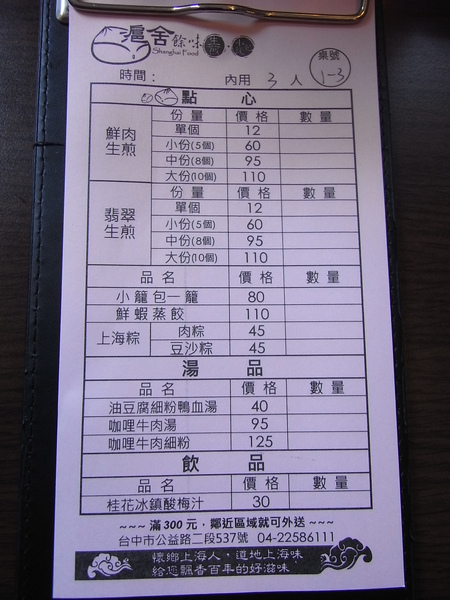 滬舍餘味
Shanghai Food
桌號
1-3
時間： 內用 3 人
點 心
鮮肉生煎 份量 價格 數量
單個 12
小份(5個) 60
中份(8個) 95
大份(10個) 110
翡翠生煎 份量 價格 數量
單個 12
小份(5個) 60
中份(8個) 95
大份(10個) 110
品名 價格 數量
小籠包一籠 80
鮮蝦蒸餃 110
上海粽 肉粽 45
豆沙粽 45
湯 品
品名 價格 數量
油豆腐細粉鴨血湯 40
咖哩牛肉湯 95
咖哩牛肉細粉 125
飲 品
品名 價格 數量
桂花冰鎮酸梅汁 30
~~~ 滿300元，鄰近區域就可外送 ~~~
台中市公益路二段537號 04-22586111
懷鄉上海人，道地上海味
給您飄香百年的好滋味